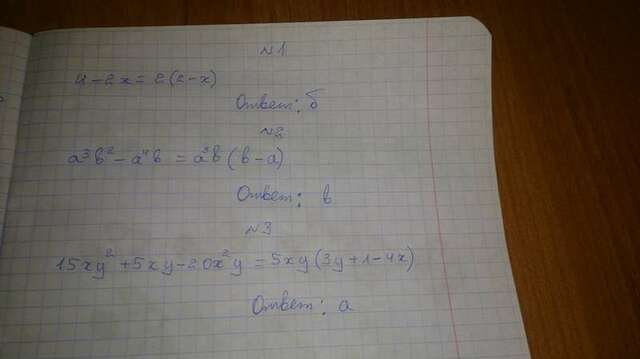 №1
4-2x=2(2-x)
Ответ: б
№2
a³b²-a⁴b=a³b(b-a)
Ответ: в
№3
15xy²+5xy-20x²y=5xy(3y+1-4x)
Ответ: а